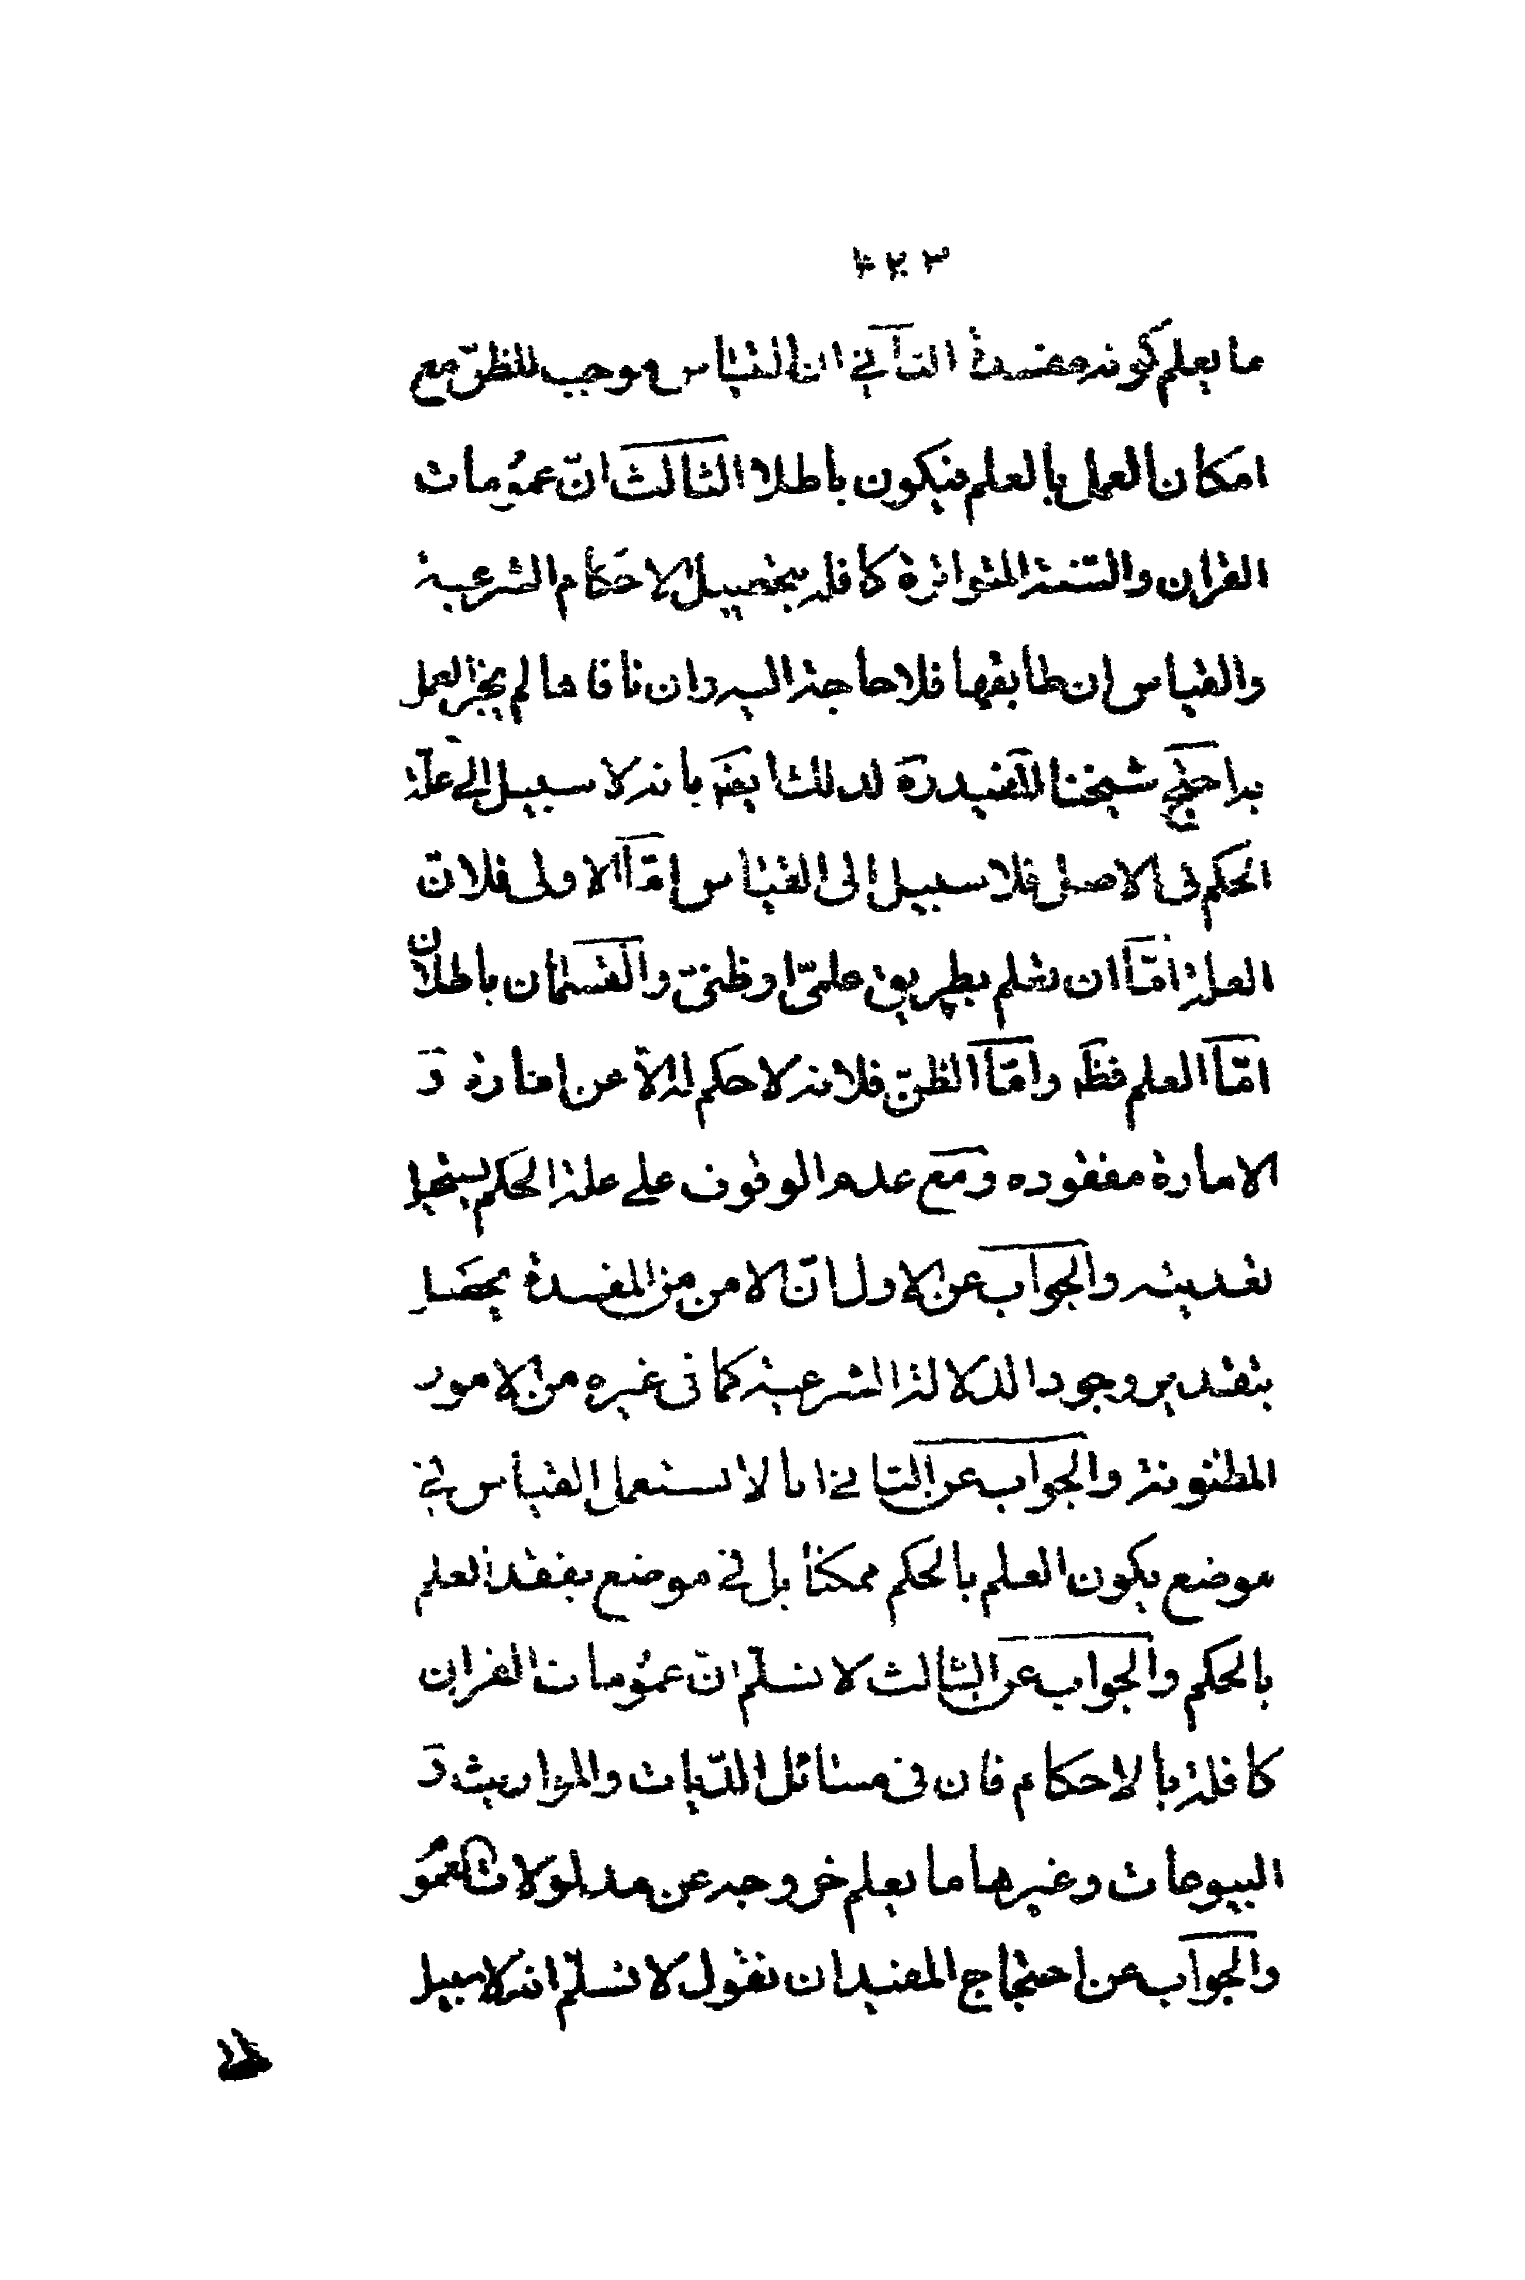 ما يعلم كونه مفسدة الثاني ان القياس موجب للظنّ مع
امكان العمل بالعلم فيكون باطلا الثالث انّ عمومات
القران والسّنة المتواترة كافلة بتحصيل الاحكام الشرعية
والقياس ان طابقها فلا حاجة اليه وان نافاها لم يجز العمل
به احتج شيخنا المفيد ره لذلك ايضا بانه لا سبيل الى علّة
الحكم فى الاصل فلا سبيل الى القياس امّا الاولى فلانّ
العلة امّا ان تعلم بطريق علمىّ او ظنىّ والقسمان باطلان
امّا العلم فظ وامّا الظنّ فلانه لا حكم له الاّ عن امارة و
الامارة مفقوده ومع عدم الوقوف على علة الحكم يستحيل
تعديته والجواب عن الاول انّ الامن من المفسدة يحصل
بتقدير وجود الدلالة الشرعية كما فى غيره من الامور
المظنونة والجواب عن الثاني انا لا نستعمل القياس في
موضع يكون العلم بالحكم ممكنا بل في موضع يفقد العلم
بالحكم والجواب عن الثالث لا نسلّم انّ عمومات القران
كافلة بالاحكام فان فى مسائل الدّيات والمواريث و
البيوعات وغيرها ما يعلم خروجه عن مدلولات العمو
والجواب عن احتجاج المفيد ان نقول لا نسلّم انه لا سبيل